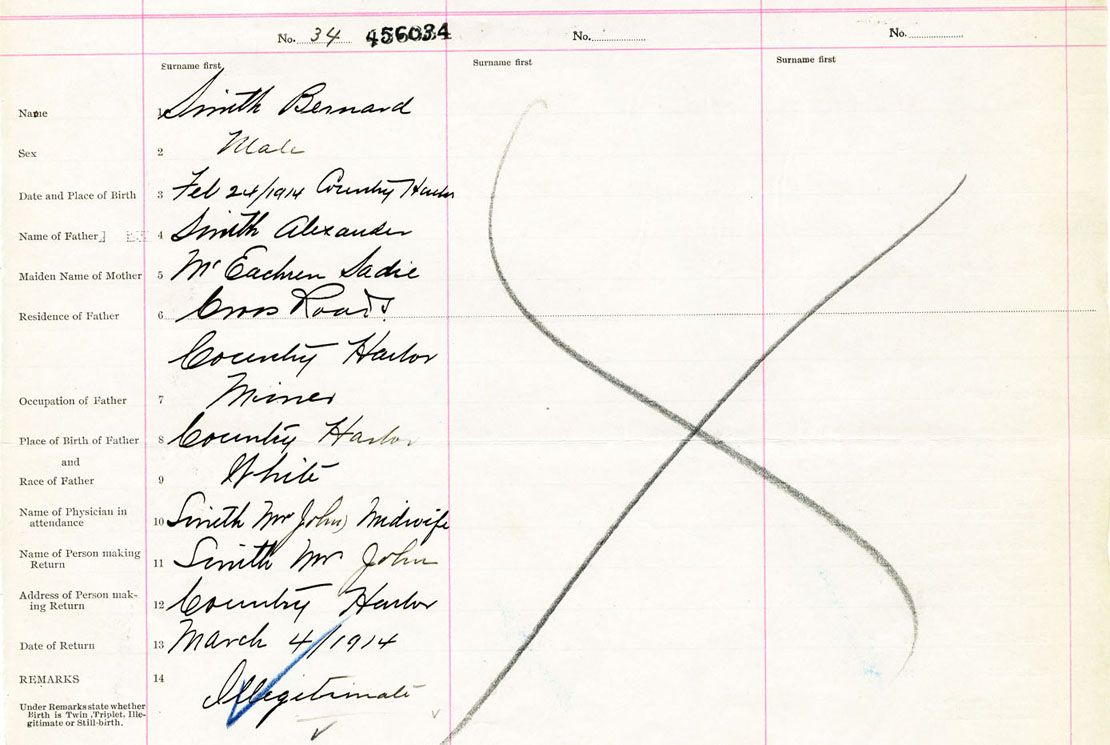 No. 34 456034 No. No.
Surname first Surname first Surname first
Name 1 Smith Bernard
Sex 2 Male
Date and Place of Birth 3 Feb 24/1914 Country Harbor
Name of Father 4 Smith Alexander
Maiden Name of Mother 5 McEachren Sadie
Residence of Father 6 Cross Roads
Country Harbor
Occupation of Father 7 Miner
Place of Birth of Father 8 Country Harbor
and
Race of Father 9 White
Name of Physician in
attendance 10 Smith Mrs John) Midwife
Name of Person making
Return 11 Smith Mrs John
Address of Person mak-
ing Return 12 Country Harbor
Date of Return 13 March 4/1914
REMARKS 14 Illegitimate
Under Remarks state whether
Birth is Twin, Triplet, Ille-
gitimate or Still-birth.